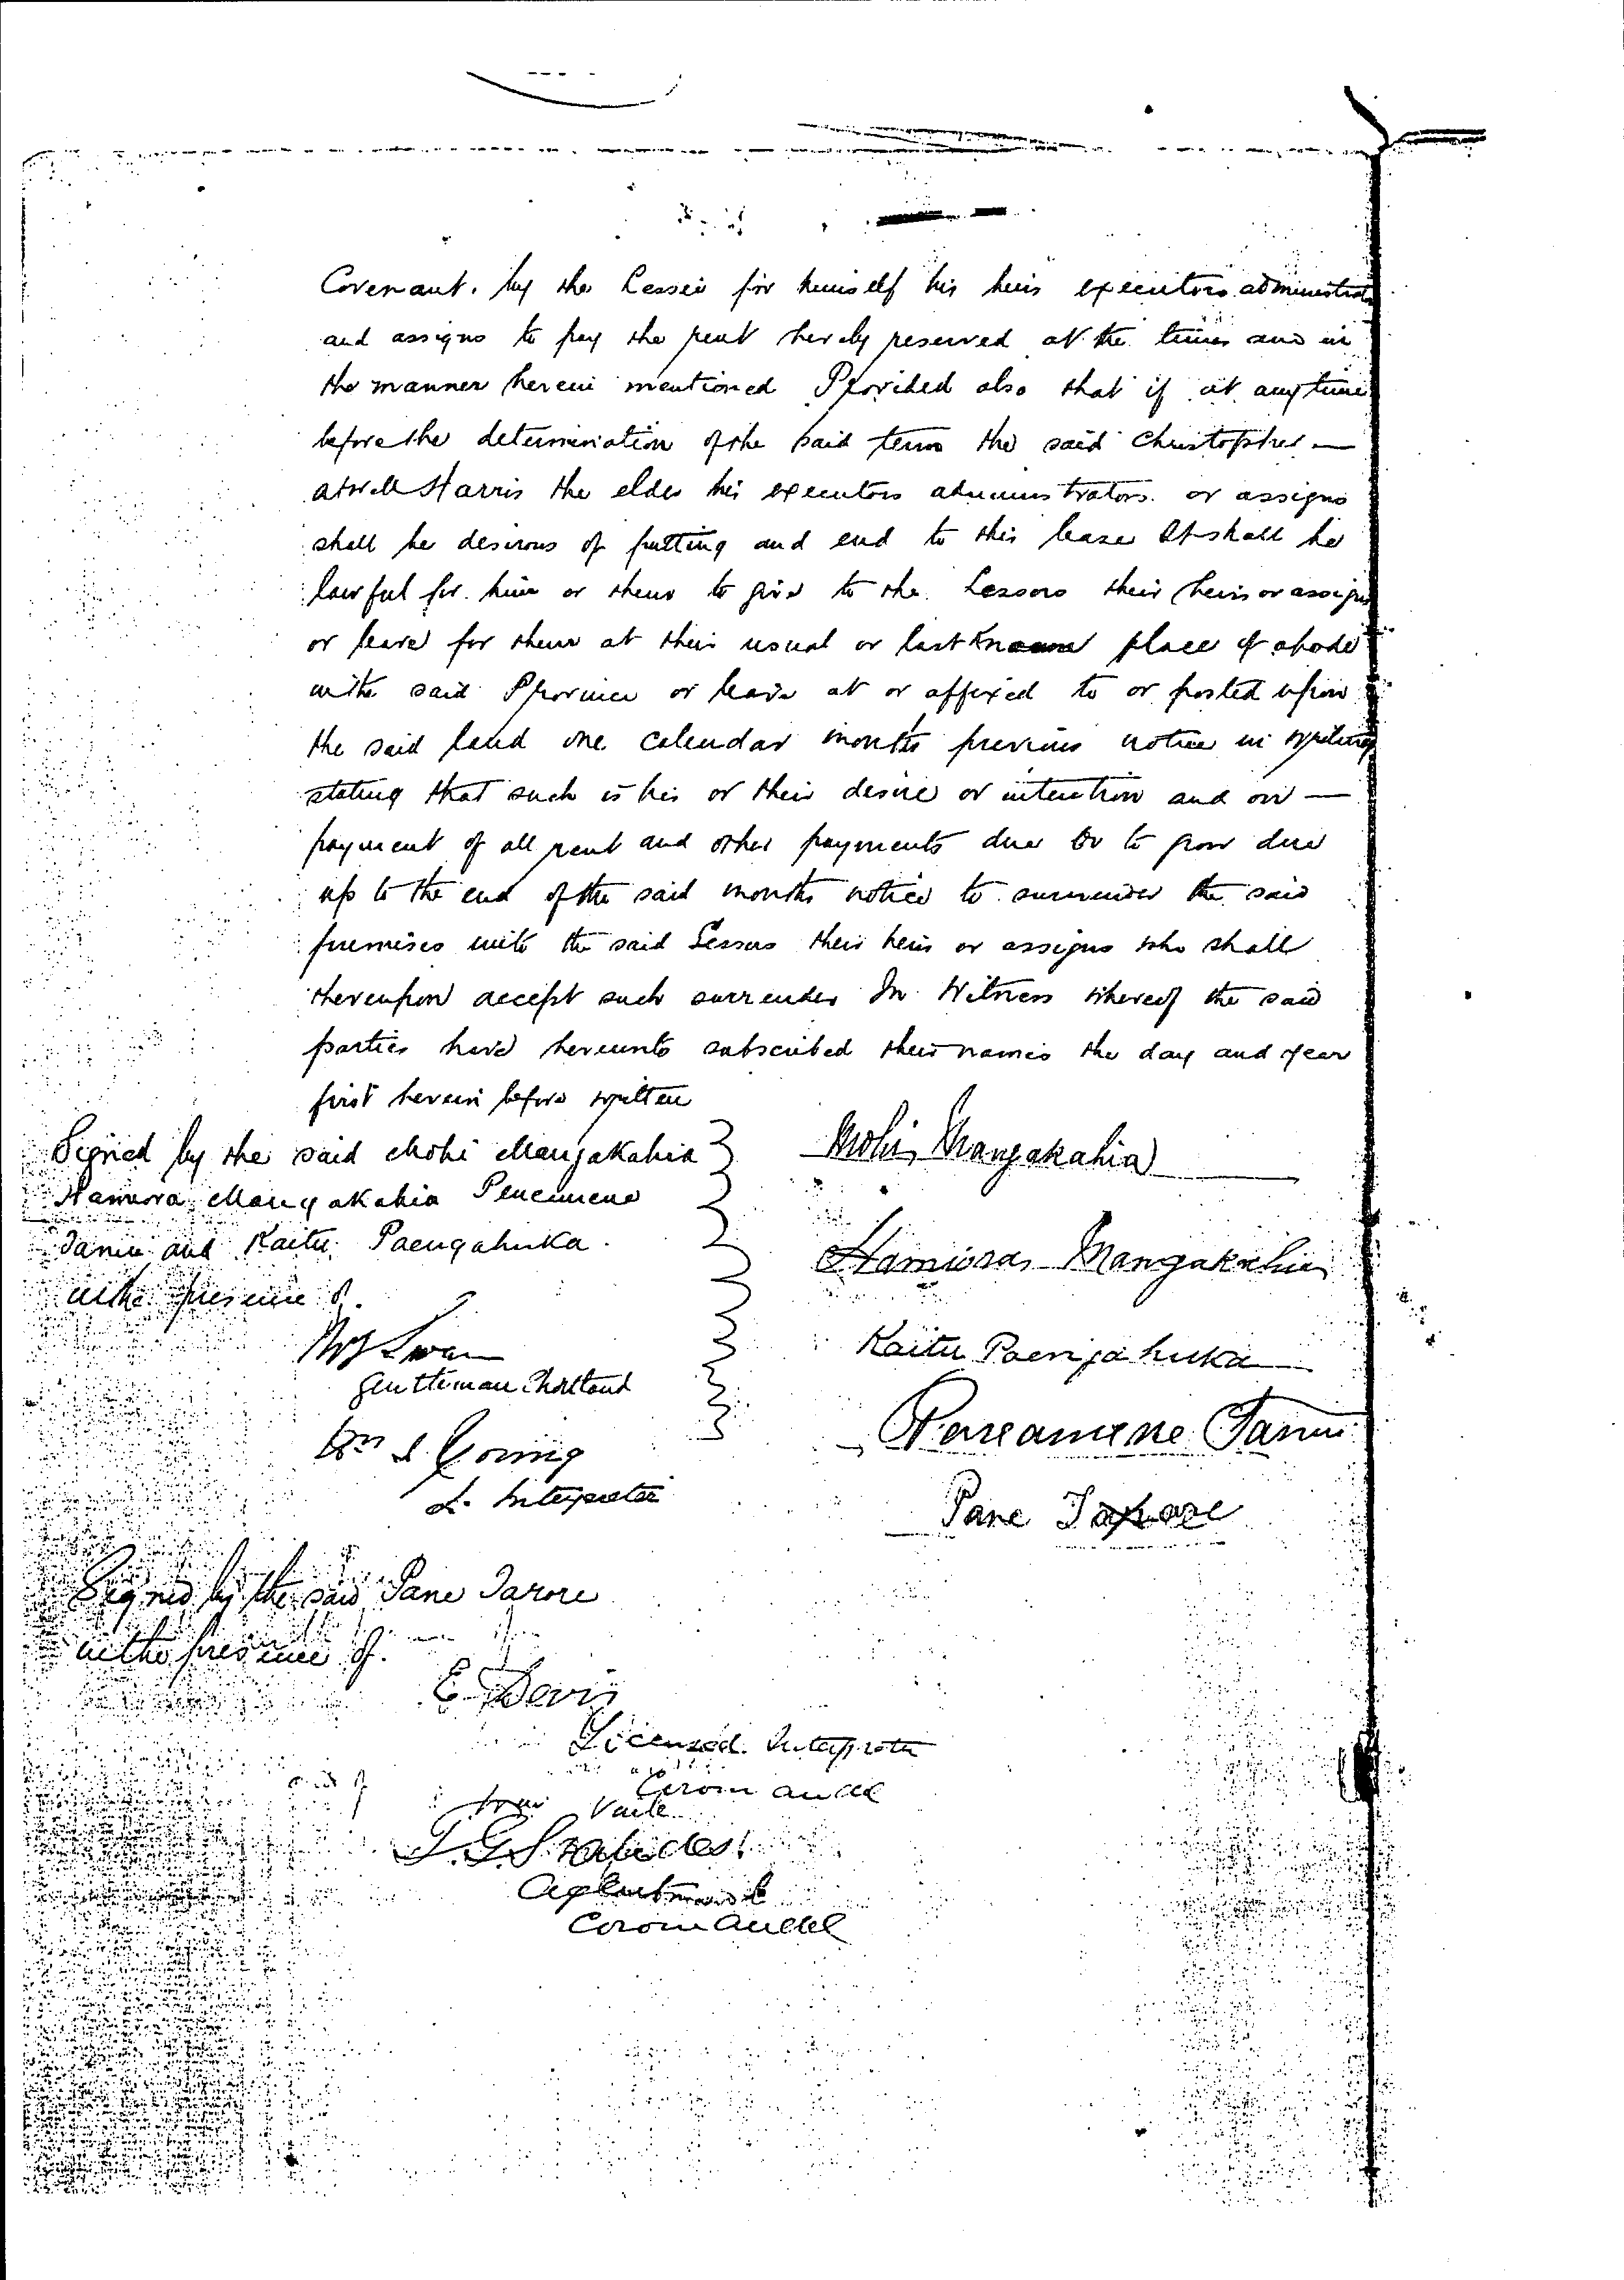 Covenant. by the Lessee for himself his heirs executors administrators
and assigns to pay the rent hereby reserved at the times and in
the manner herein mentioned Provided also that if at anytime
before the determination of the said term the said Christopher —
Atwell Harris the elder his executors administrators or assigns
shall be desirous of putting and end to this lease It shall be
lawful for him or them to give to the Lessors their heirs or assigns
or leave for them at their usual or last known place of abode
in the said Province or leave at or affixed to or posted upon
the said land one calendar months previous notice in writing
stating that such is his or their desire or intention and on —
payment of all rent and other payments due or to grow due
up to the end of the said months notice to surrender the said
premises unto the said Lessors their heirs or assigns who shall
thereupon accept such surrender In Witness whereof the said
parties have hereunto subscribed their names the day and year
first herein before written
Signed by the said Mohi Mangakahia
Hamiora Mangakahia Peneamene
Tanui and Kaitu Paengahuka.
in the presence of.
Swan
Gentleman
Wm Young
L. Interpreter
Mohi Mangakahia
Hamiora Mangakahia
Kaitu Paengahuka
Peneamene Tanui
Pane Tarore
Signed by the said Pane Tarore
in the presence of.
E. Davis
Licensed Interpreter
Coromandel
T. G.
Coromandel